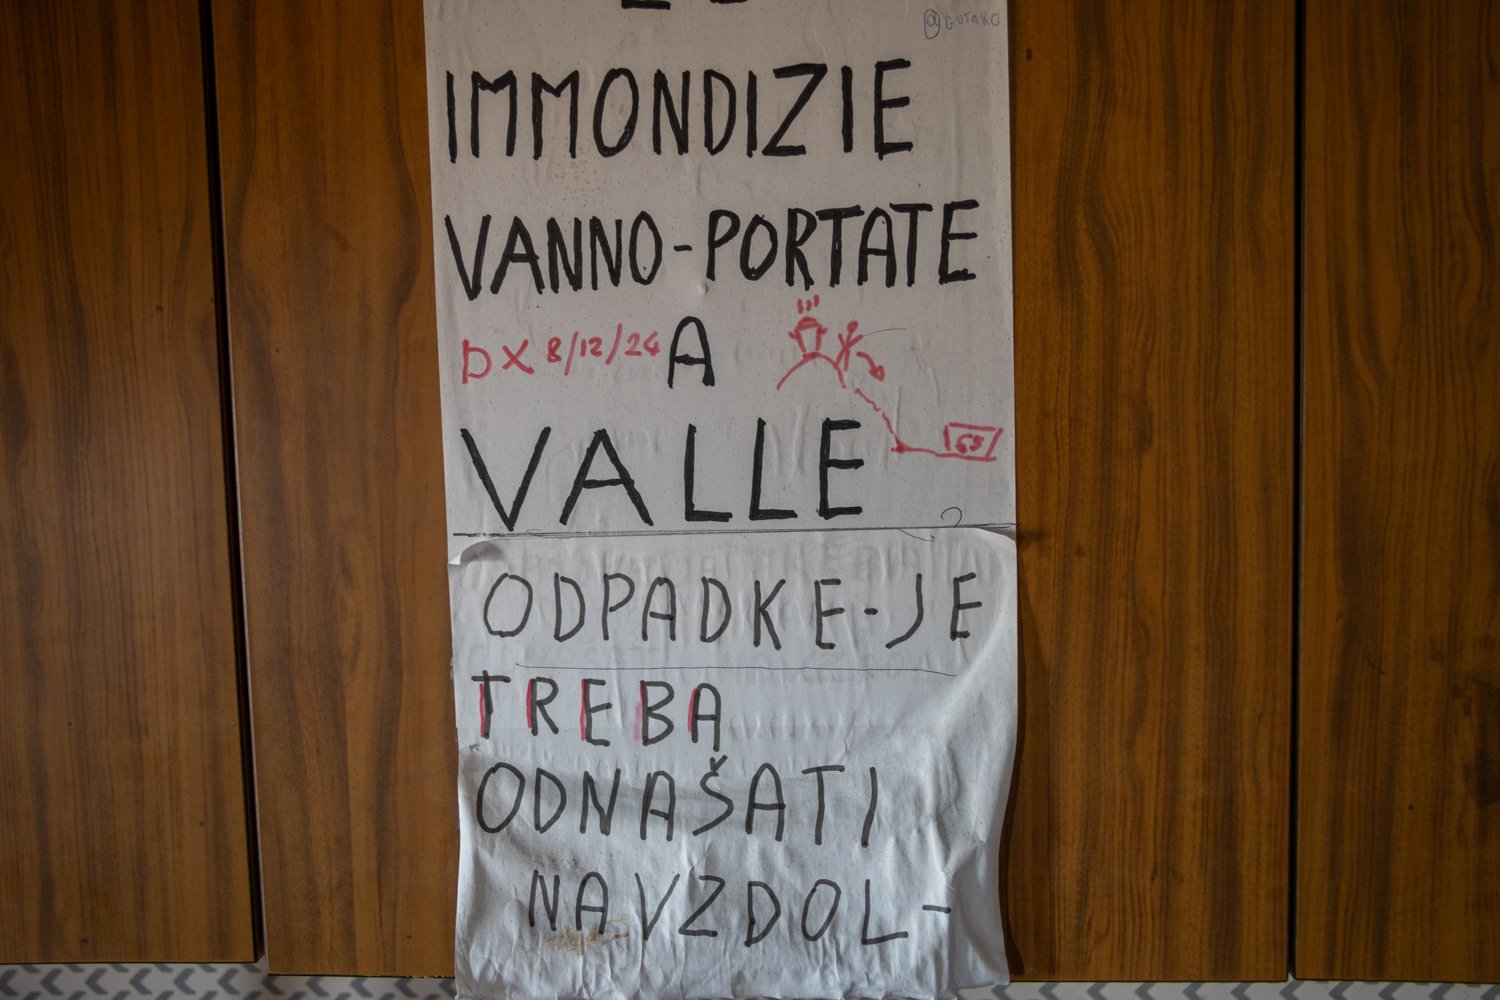 @GUSAKO
IMMONDIZIE
VANNO-PORTATE
DX 8/12/24 A
VALLE
ODPADKE-JE
TREBA
ODNAŠATI
NAVZDOL-